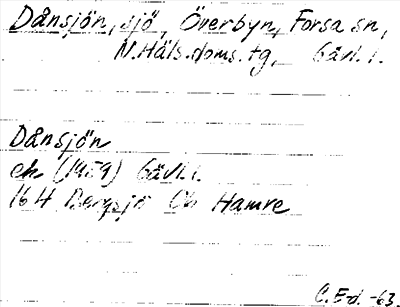 Dånsjön, sjö, Överbyn, Forsa sn,
N.Häls.doms.tg, Gävl.l.
Dånsjön
ek (1959) Gävl.l.
16H Bergsjö Ob Hamre
C.Ed.-63.